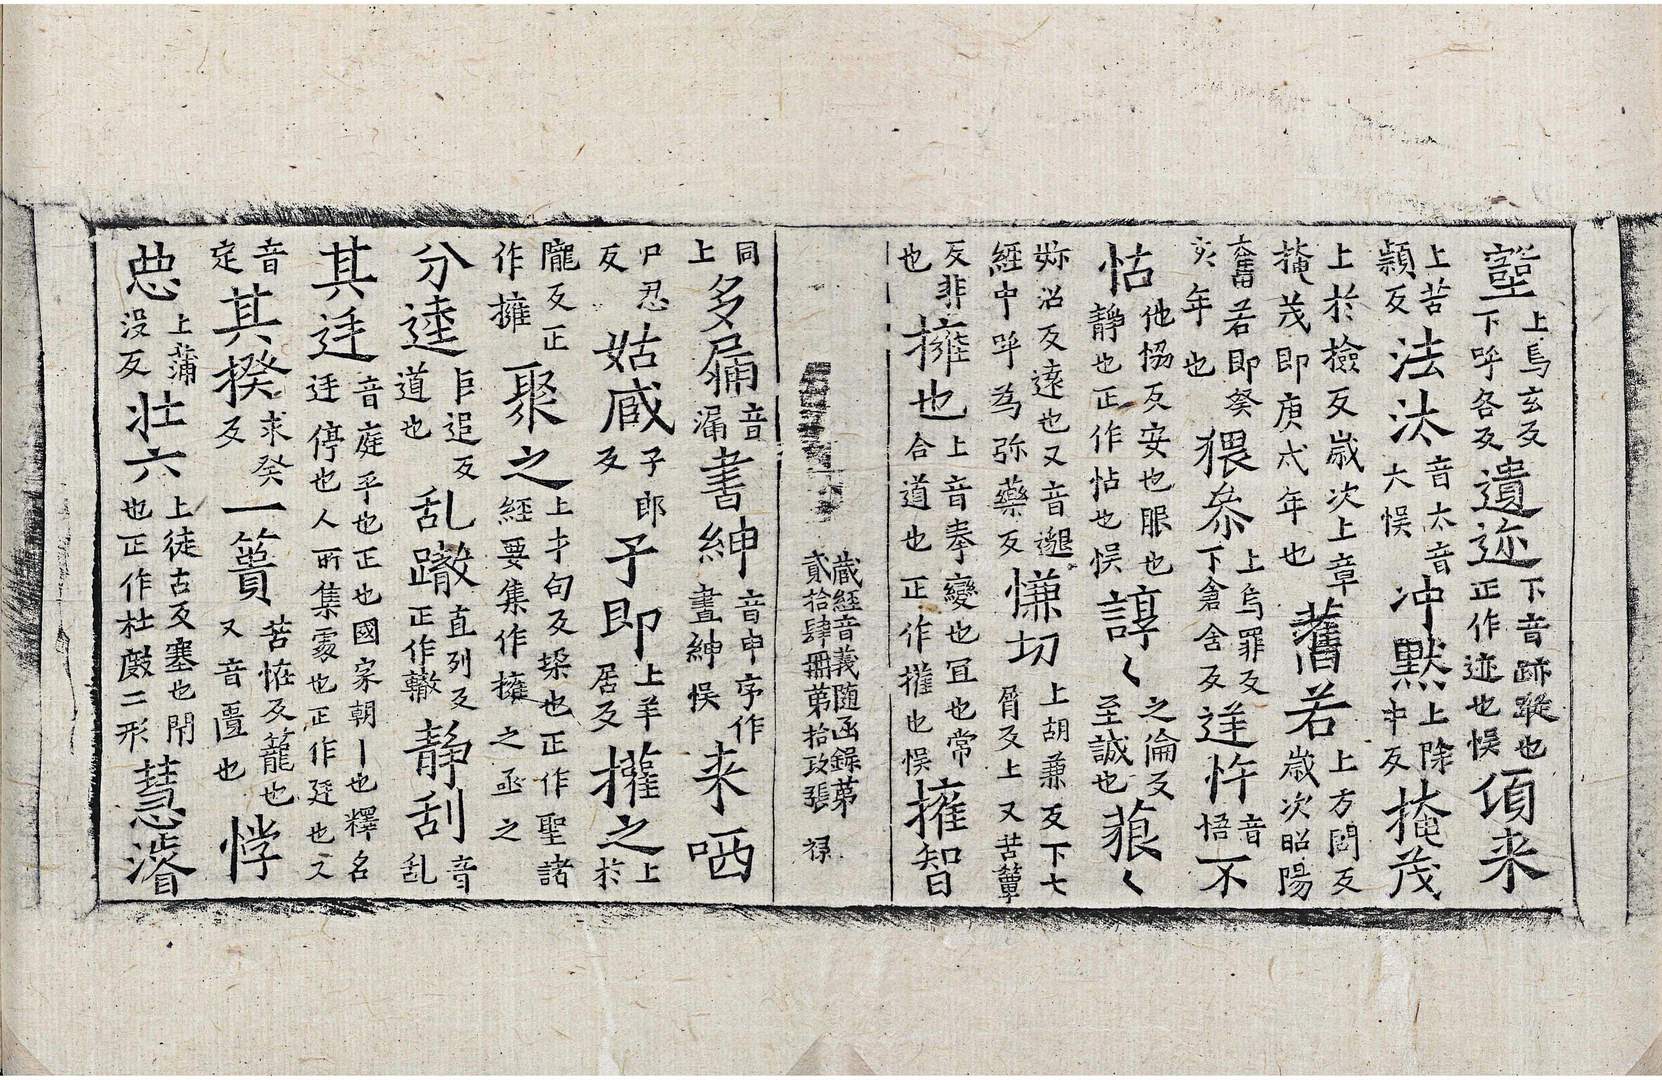 壑上烏玄反下呼各反遺迩下音跡蹤也正作迹也悮傾来
上苦穎反法汏音太音大悮冲黙上除中反掩茂
上於撿反歳次上章掩茂即庚戍年也舊若上方問反歳次昭陽
奮若即癸亥年也猥叅上烏罪反下倉含反逆忤音悟不
怗他協反安也服也靜也正作怗也悮諄〻之倫反至誠也蒗〻
妳沼反遠也又音邈經中呼為弥藥反慊切上胡兼反下七屑反上又苦簟
反非也擁也上音奉變也冝也常合道也正作擁也悮擁智
蔵經音義随函録第貳拾肆冊第拾政張 禄
同上多扄音漏書紳音申字作晝紳悮来哂
尸忍反姑臧子郎反子即上羊居反擁之上於
龐反正作擁聚之上才句反琛也正作聖諸經要集作擁之丞之
分逵巨追反道也乱蹾直列反正作轍靜刮音乱
其廷音庭平也正也國家朝丨也釋名廷停也人所集䖏也正作廷也又
音定其揆求癸反一簣苦恠反籠也又音匱也悖
㤳上蒲沒反壮六上徒古反塞也閇也正作杜㪟二形慧濬